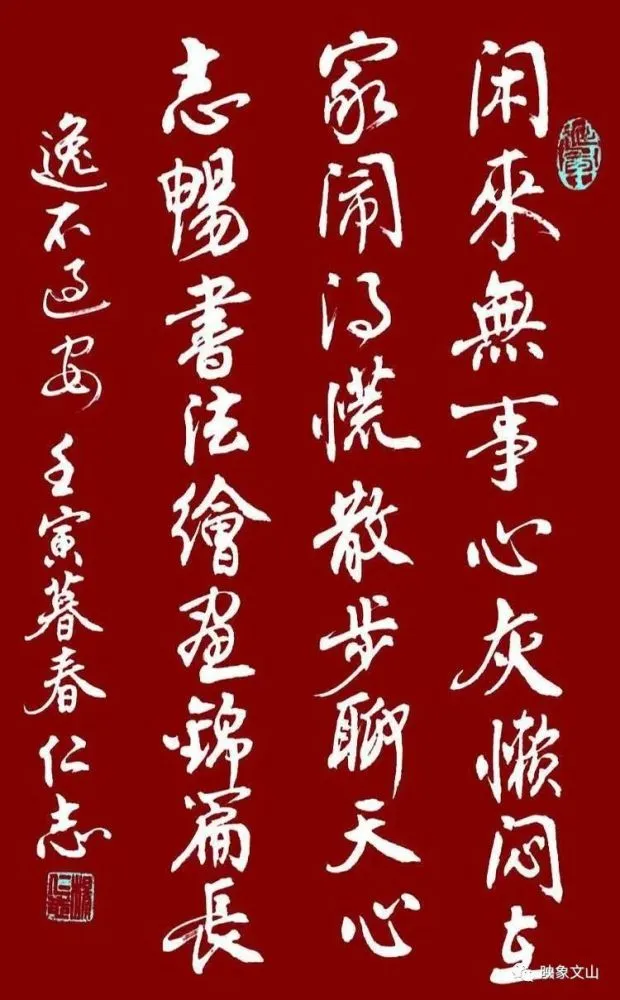 闲来無事心灰懒闷在
家闹得慌散步聊天心
志暢書法繪画錦篇長
逸不过安 壬寅暮春 仁志
映象文山